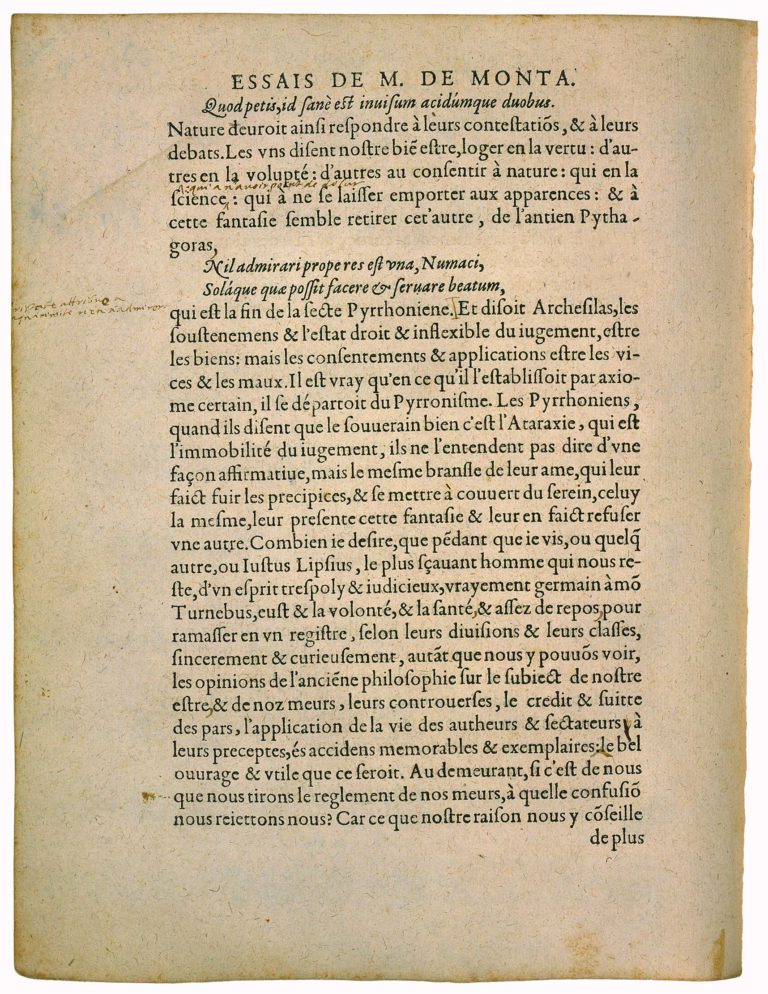 ESSAIS DE M. DE MONTA.
Quod petis, id sanè est inuisum acidúmque duobus.
Nature deuroit ainsi respondre à leurs contestatiõs, & à leurs
debats. Les vns disent nostre biẽ estre, loger en la vertu : d'au-
tres en la volupté : d'autres au consentir à nature : qui en la
science, : qui à ne se laisser emporter aux apparences : & à
cette fantasie semble retirer cet'autre , de l'antien Pytha-
goras,
Nil admirari prope res est vna, Numaci,
Soláque quæ possit facere & seruare beatum,
qui est la fin de la secte Pyrrhoniene. Et disoit Archesilas, les
soustenemens & l'estat droit & inflexible du iugement, estre
les biens: mais les consentements & applications estre les vi-
ces & les maux. Il est vray qu'en ce qu'il l'establissoit par axio-
me certain, il se départoit du Pyrronisme. Les Pyrrhoniens ,
quand ils disent que le souuerain bien c'est l'Ataraxie , qui est
l'immobilité du iugement, ils ne l'entendent pas dire d'vne
façon affirmatiue, mais le mesme bransle de leur ame, qui leur
faict fuir les precipices, & se mettre à couuert du serein, celuy
la mesme, leur presente cette fantasie & leur en faict refuser
vne autre. Combien ie desire, que pẽdant que ie vis, ou quelq̃
autre, ou Iustus Lipsius , le plus sçauant homme qui nous re-
ste, d'vn esprit trespoly & iudicieux, vrayement germain à mõ
Turnebus, eust & la volonté, & la santé, & assez de repos, pour
ramasser en vn registre , selon leurs diuisions & leurs classes,
sincerement & curieusement , autãt que nous y pouuõs voir,
les opinions de l'anciẽne philosophie sur le subiect de nostre
estre, & de noz meurs , leurs controuerses , le credit & suitte
des pars, l'application de la vie des autheurs & sectateurs, à
leurs preceptes, és accidens memorables & exemplaires: le bel
ouurage & vtile que ce seroit. Au demeurant, si c'est de nous
que nous tirons le reglement de nos meurs, à quelle confusiõ
nous reiettons nous? Car ce que nostre raison nous y cõseille
de plus